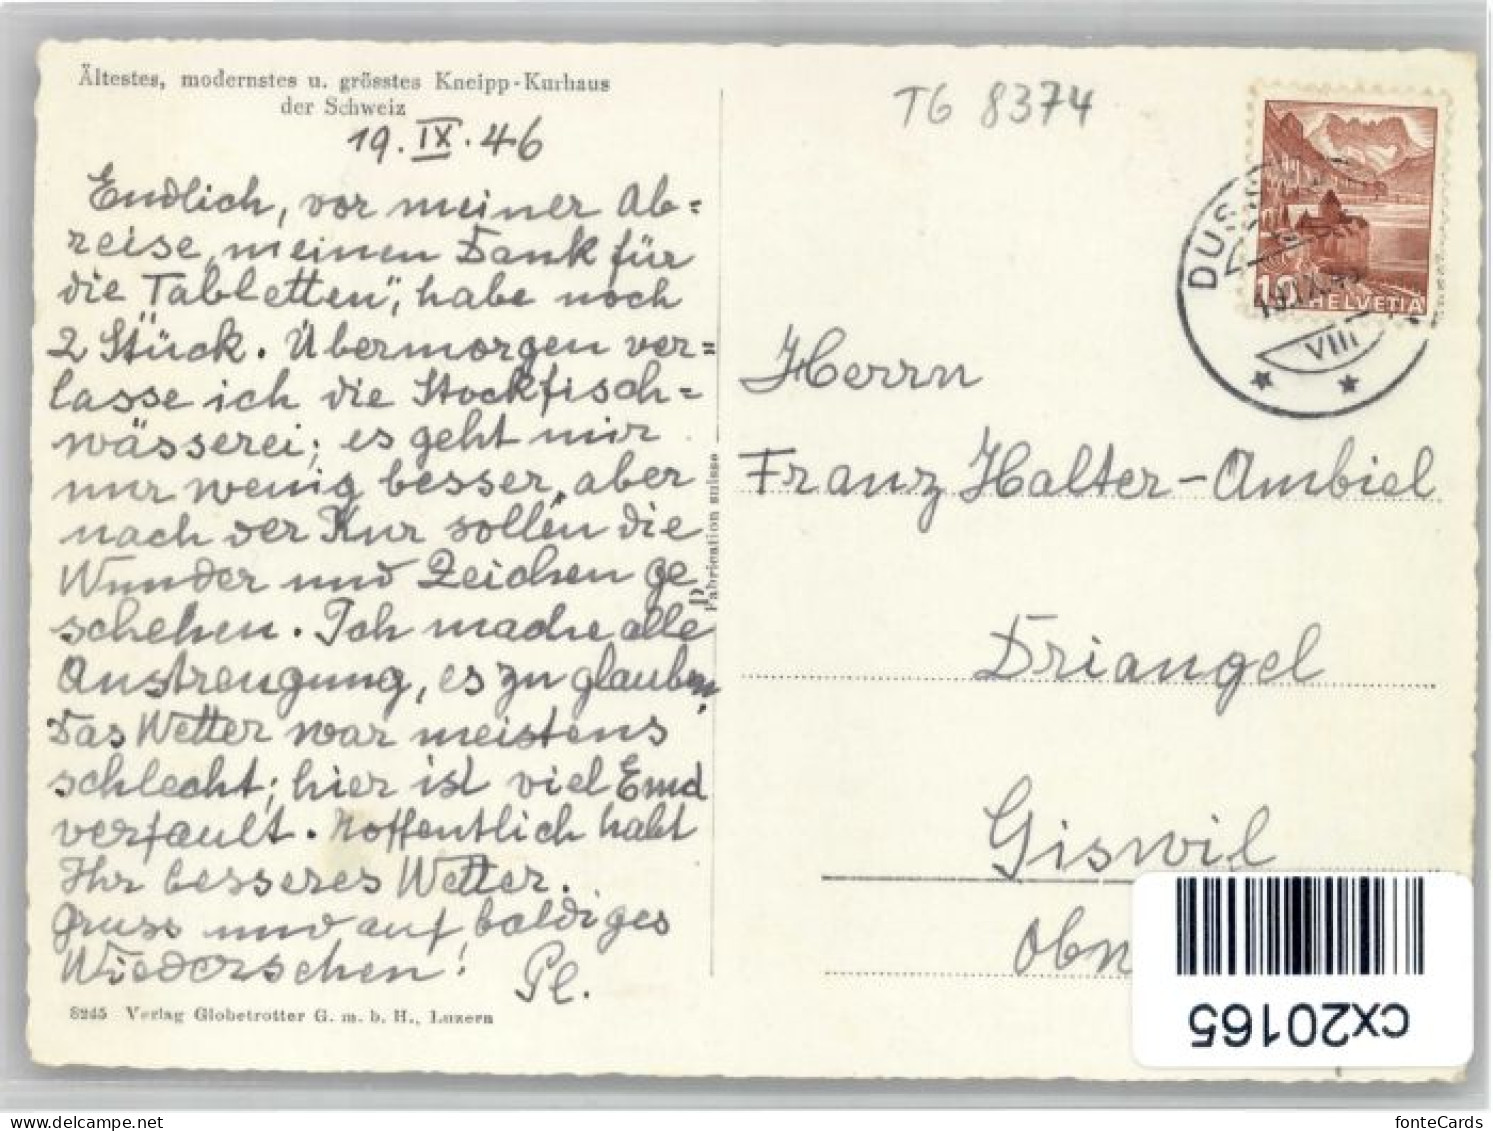 Ältestes, modernstes u. grösstes Kneipp-Kurhaus
der Schweiz
19.IX.46
Endlich, vor meiner Ab=
reise, meinen Dank für
die "Tabletten", habe noch
2 Stück. Übermorgen ver=
lasse ich die Stockfisch=
wässerei; es geht mir
nur wenig besser, aber
nach der Kur sollen die
Wunder und Zeichen ge
schehen. Ich mache alle
Anstrengung, es zu glauben.
Das Wetter war meistens
schlecht; hier ist viel Emd
verfault. Hoffentlich habt
Ihr besseres Wetter.
Gruss und auf baldiges
Wiedersehen! Pl.
8245 Verlag Globetrotter G. m. b. H., Luzern
Fabrication suisse
TG 8374
10 HELVETIA
DUSS
VIII
Herrn
Franz Halter-Ambiel
Driangel
Giswil
Obw
cx20165
fonteCards